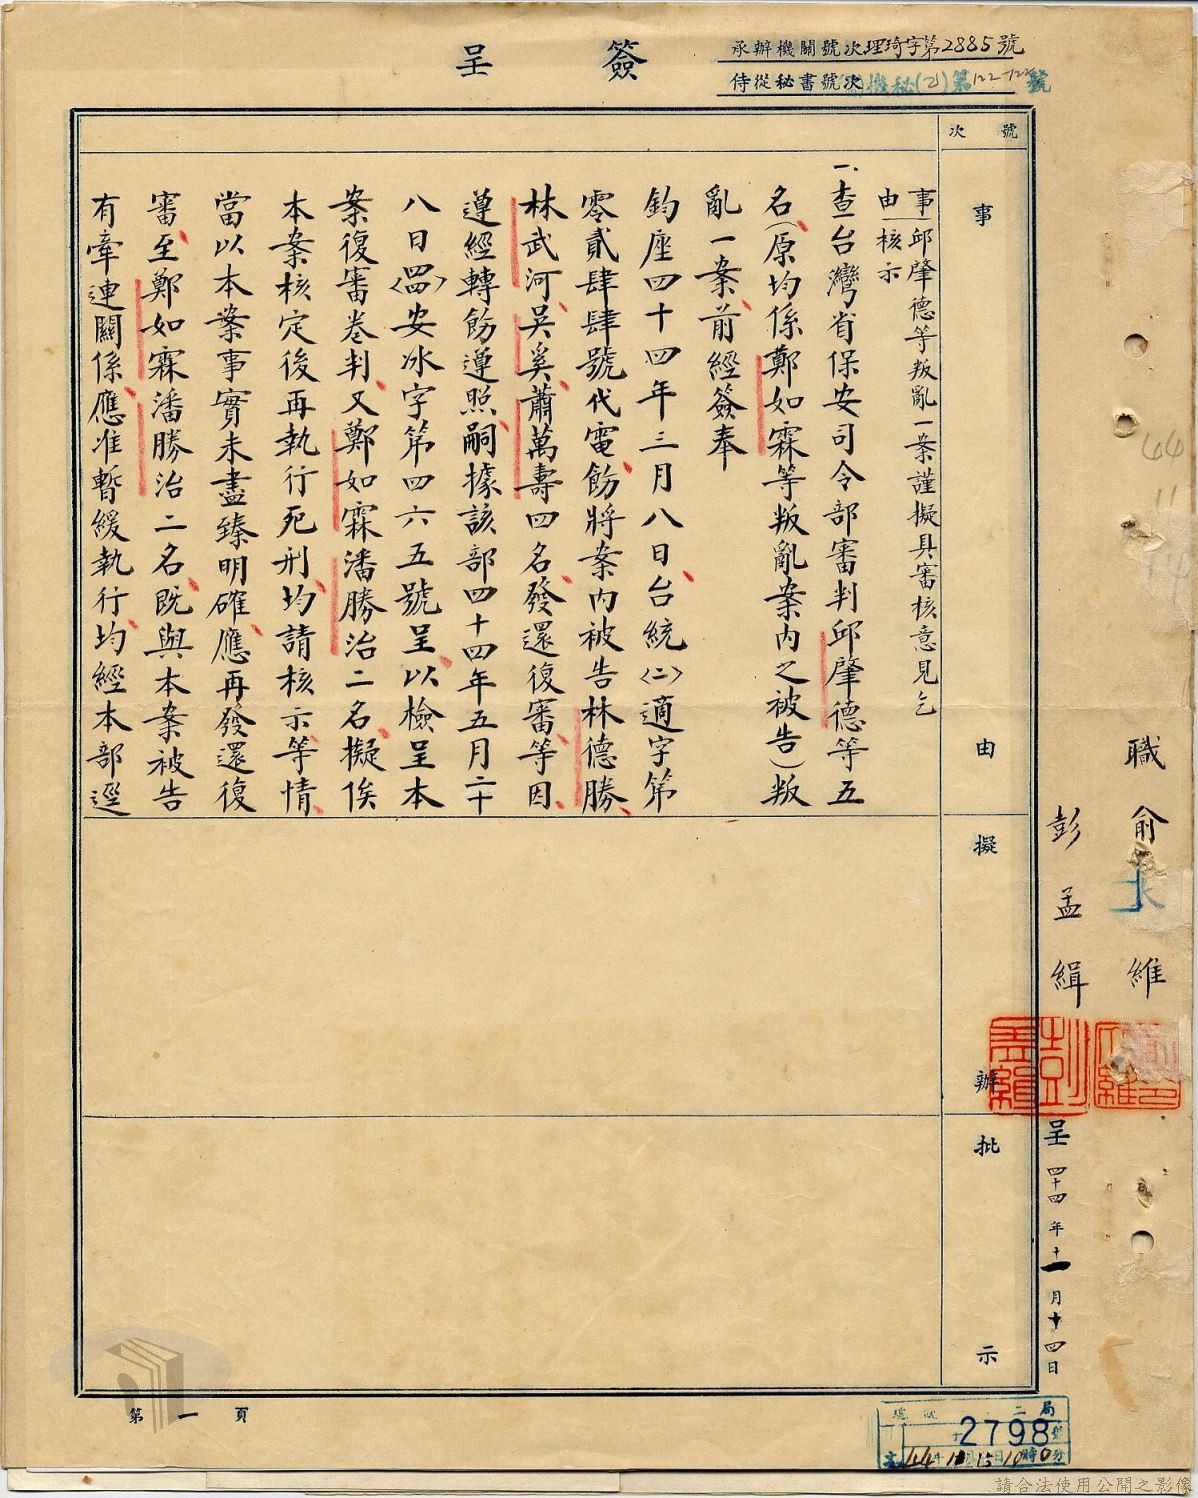 簽呈
承辦機關號次理琦字第2885號
侍從秘書號次機秘(乙)第122-122號
號次
事由
擬辦
批示
職 俞 維
彭孟緝
呈 四十四年十一月十四日
事由 邱肇德等叛亂一案謹擬具審核意見乞
核示
一、查台灣省保安司令部審判邱肇德等五
名(原均係鄭如霖等叛亂案內之被告)叛
亂一案前經簽奉
鈞座四十四年三月八日台統〈二〉適字第
零貳肆肆號代電飭將案內被告林德勝
林武河吳奚蕭萬壽四名發還復審等因
遵經轉飭遵照嗣據該部四十四年五月二十
八日〈四四〉安冰字第四六五號呈以檢呈本
案復審卷判又鄭如霖潘勝治二名擬俟
本案核定後再執行死刑均請核示等情
當以本案事實未盡臻明確應再發還復
審至鄭如霖潘勝治二名既與本案被告
有牽連關係應准暫緩執行均經本部逕
第一頁
二局
號次
2798
44 11 15 10 時 0 分
44
11
14
請合法使用公開之影像